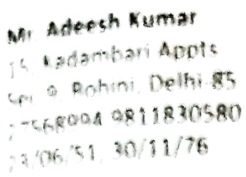 Mr Adeesh Kumar
Kadambari Appts
9, Rohini, Delhi-85
27568994 9811830580
/06/51, 30/11/76